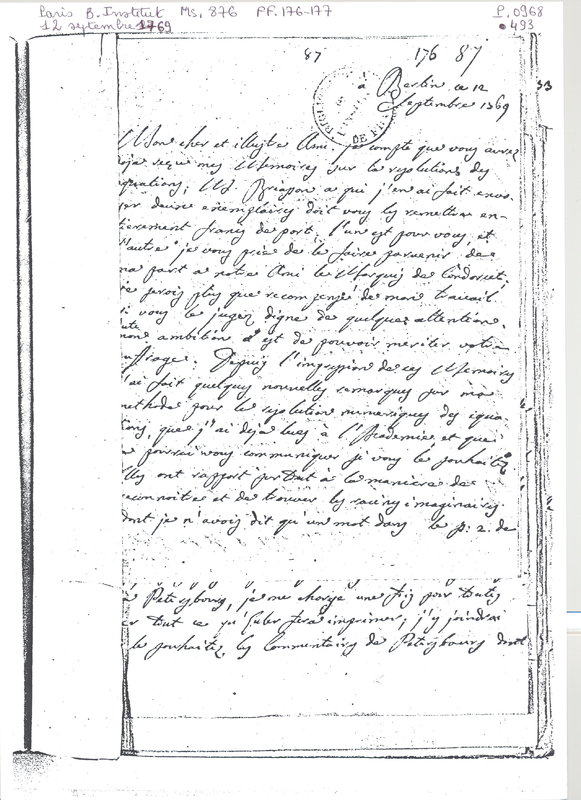 Paris B. Institut Ms. 876 FF. 176-177 P. 0968
12 septembre 1769 493
87 176 87
à Berlin ce 12
53
Septembre 1769
DE FRANCE
Mon cher et illustre Ami. je compte que vous aurez
deja reçu mes Memoires sur la resolution des
equations; M. Briasson a qui j'en ai fait envo-
yer deux exemplaires doit vous les remettre en-
tierement francs de port; l'un est pour vous, et
l'autre je vous prie de le faire parvenir de
ma part a notre Ami le Marquis de Condorcet;
je serois plus que recompensé de mon travail
si vous le jugez digne de quelque attention.
toute
mon ambition est de pouvoir meriter votre
suffrage. Depuis l'impression de ces Memoires
j'ai fait quelques nouvelles remarques sur ma
methode pour la resolution numerique des equa-
tions, que j'ai deja lues à l'Academie, et que
je pourrai vous communiquer si vous le souhaitez
Elles ont rapport surtout à la maniere de
reconnoitre et de trouver les racines imaginaires
dont je n'avois dit qu'un mot dans le p. 2. de
à Petersbourg, je me charge une fois pour toutes
tout ce qu'Euler fera imprimer; j'y joindrai
le souhaitez, les Commentaires de Petersbourg dont